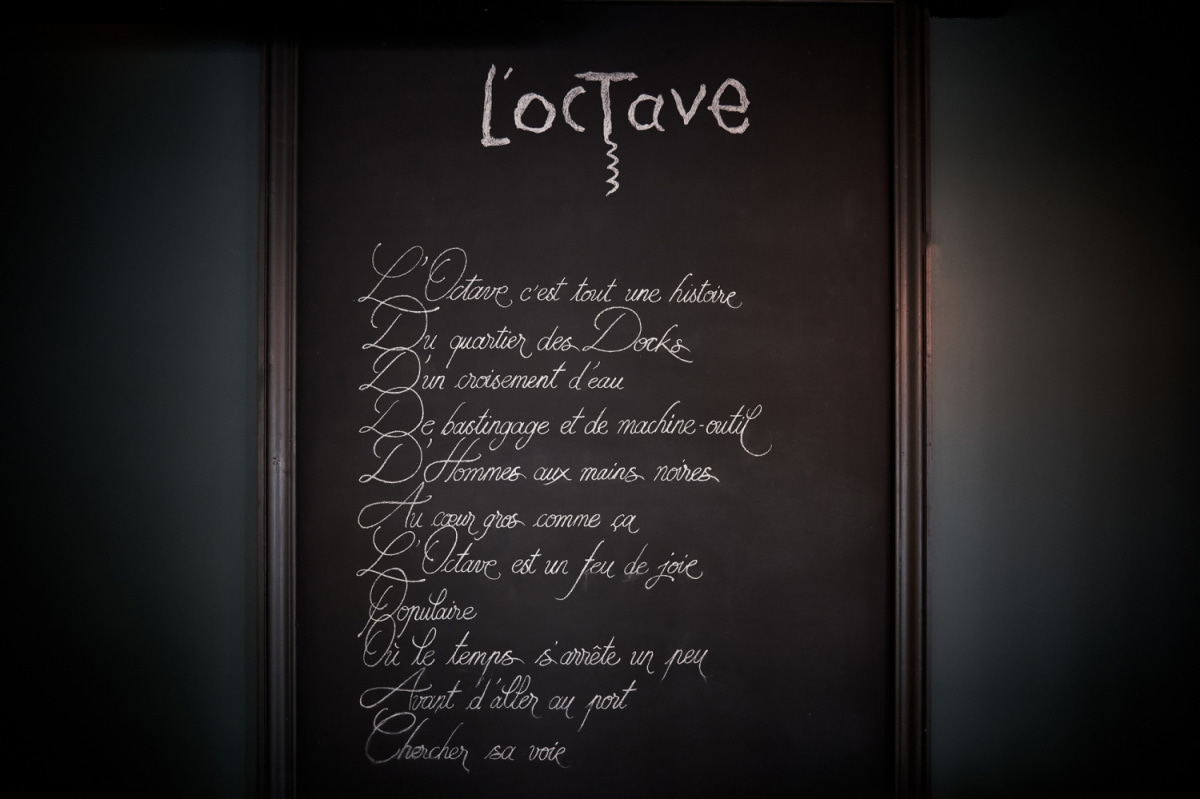 L'OCTAVE
L'Octave c'est tout une histoire
Du quartier des Docks
D'un croisement d'eau
De bastingage et de machine-outil
D'Hommes aux mains noires
Au cœur gros comme ça
L'Octave est un feu de joie
Populaire
Où le temps s'arrête un peu
Avant d'aller au port
Chercher sa voie